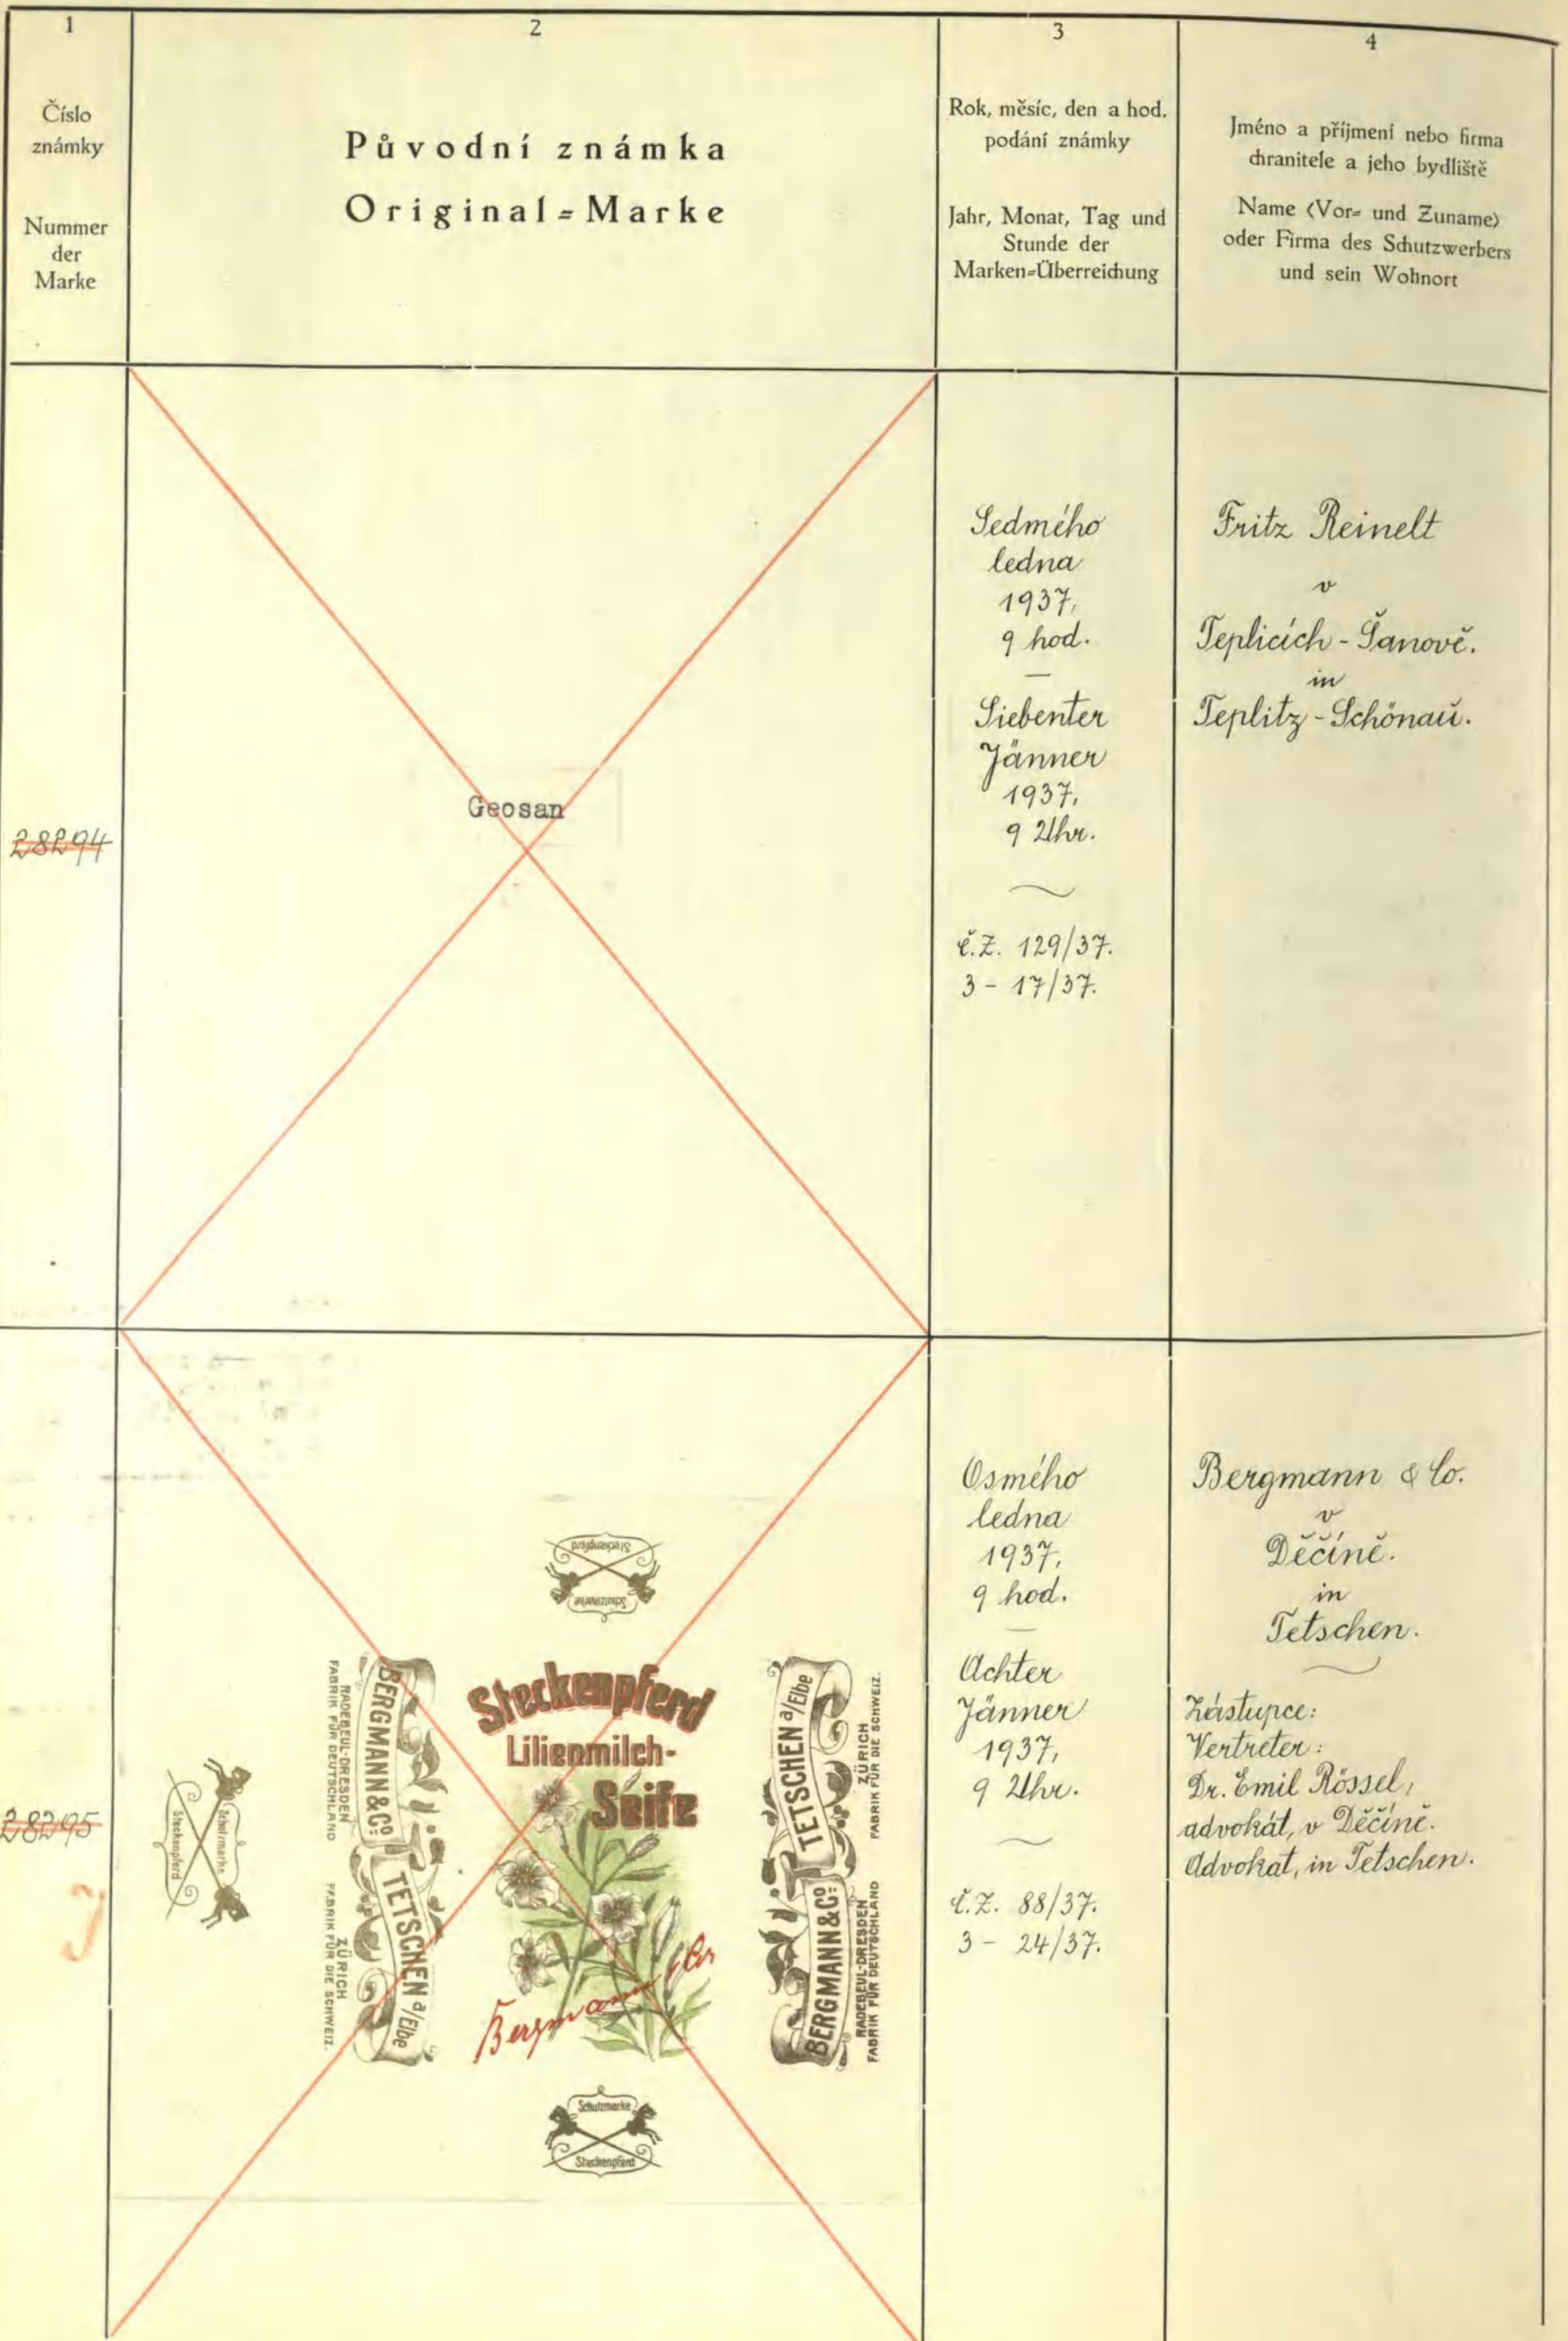 1
Číslo
známky
Nummer
der
Marke
2
Původní známka
Original=Marke
3
Rok, měsíc, den a hod.
podání známky
Jahr, Monat, Tag und
Stunde der
Marken=Überreichung
4
Jméno a příjmení nebo firma
chranitele a jeho bydliště
Name (Vor= und Zuname)
oder Firma des Schutzwerbers
und sein Wohnort
28294
Geosan
Sedmého
ledna
1937,
9 hod.
Siebenter
Jänner
1937,
9 Uhr.
č.Z. 129/37.
3 - 17/37.
Fritz Reinelt
v
Teplicích - Šanově.
in
Teplitz - Schönau.
28295
Schutzmarke
Steckenpferd
Schutzmarke
Steckenpferd
BERGMANN & Co.
TETSCHEN a/Elbe
RADEBEUL-DRESDEN
FABRIK FÜR DEUTSCHLAND
ZÜRICH
FABRIK FÜR DIE SCHWEIZ.
Steckenpferd
Lilienmilch-
Seife
Bergmann & Co
TETSCHEN a/Elbe
BERGMANN & Co.
ZÜRICH
FABRIK FÜR DIE SCHWEIZ.
RADEBEUL-DRESDEN
FABRIK FÜR DEUTSCHLAND
Schutzmarke
Steckenpferd
Osmého
ledna
1937,
9 hod.
Achter
Jänner
1937,
9 Uhr.
č.Z. 88/37.
3 - 24/37.
Bergmann & Co.
v
Děčíně.
in
Tetschen.
Zástupce:
Vertreter:
Dr. Emil Rössel,
advokát, v Děčíně.
Advokat, in Tetschen.